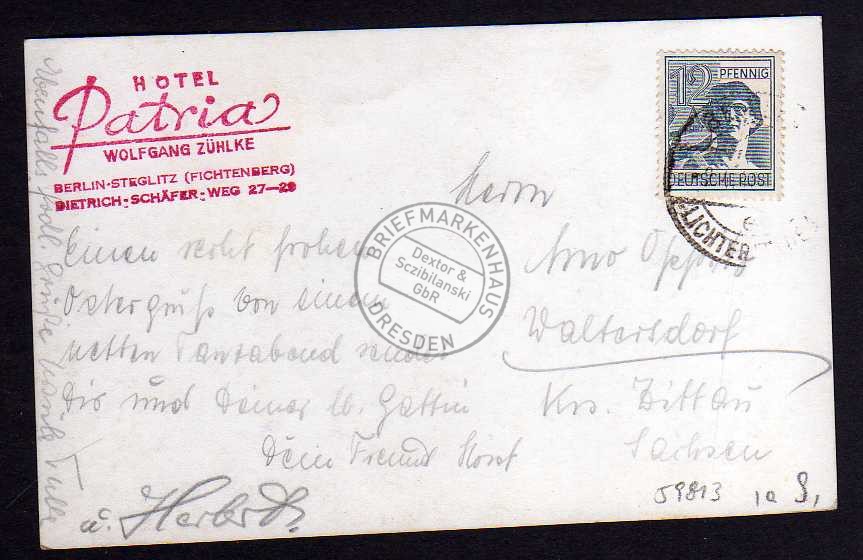 HOTEL
Patria
WOLFGANG ZÜHLKE
BERLIN-STEGLITZ (FICHTENBERG)
DIETRICH-SCHÄFER-WEG 27—29
12 PFENNIG
DEUTSCHE POST
LICHTER
Herrn
Arno
Waltersdorf
Krs. Zittau
Sachsen
Einen recht frohen
Ostergruß von einem
netten Tanzabend sendet
Dir und Deiner lb. Gattin
Dein Freund Horst
u. Herbert
Ebenfalls Grüße
BRIEFMARKENHAUS
Dextor &
Sczibilanski
GbR
DRESDEN
59813
1a S,